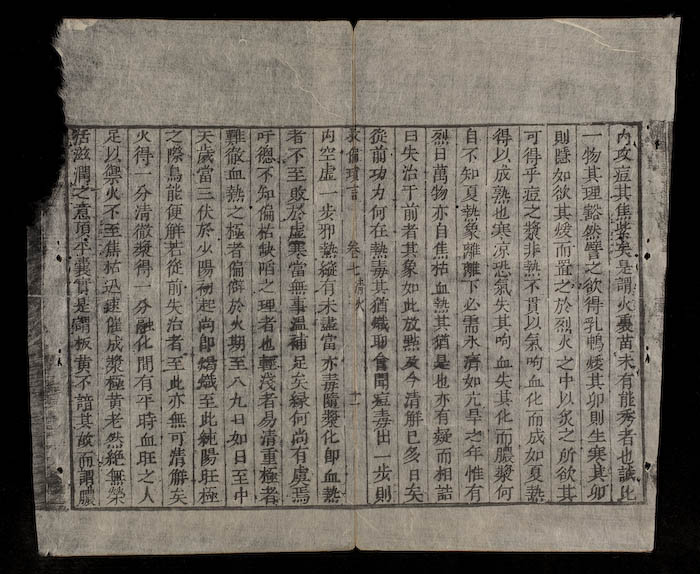 內攻痘其焦紫矣是謂火裏苗未有能秀者也誠比
一物其理豁然譬之欲得乳鴨煖其卵則生寒其卵
則如欲其煖而置之於烈火之中以炙之所欲其
可得乎痘之漿非熱不貫以氣呴血化而成如夏熱
得以成熟也寒凉恐氣失其呴血失其化而膿漿何
自不知夏熱象離離下必需水濟如亢旱之年惟有
烈日萬物亦自焦枯血熱其猶是也亦有疑而相詰
曰失治于前者其象如此放點及今清解已多日矣
從前功力何在熱毒其猶熾耶會聞痘毒出一步則
救偏瑣言 卷七清火 十二
內空虛一步卯熱縱有未盡當亦毒隨漿化即血熱
者不至敗於虛寒當無事溫補足矣緣何尚有虞焉
吁德不知偏枯缺陷之理者也輕淺者易清重極者
難徹血熱之極者偏僻於火期至八九日如日至中
天歲當三伏於少陽初起尚卽熾至此純陽旺極
之際烏能便解若從前失治者至此亦無可清解矣
火得一分清微漿得一分融化間有平時血旺之人
足以禦火不至焦枯迅速催成漿極黃老然絕無榮
活滋潤之意頂平囊實是謂板黃不諳其故而謂膿